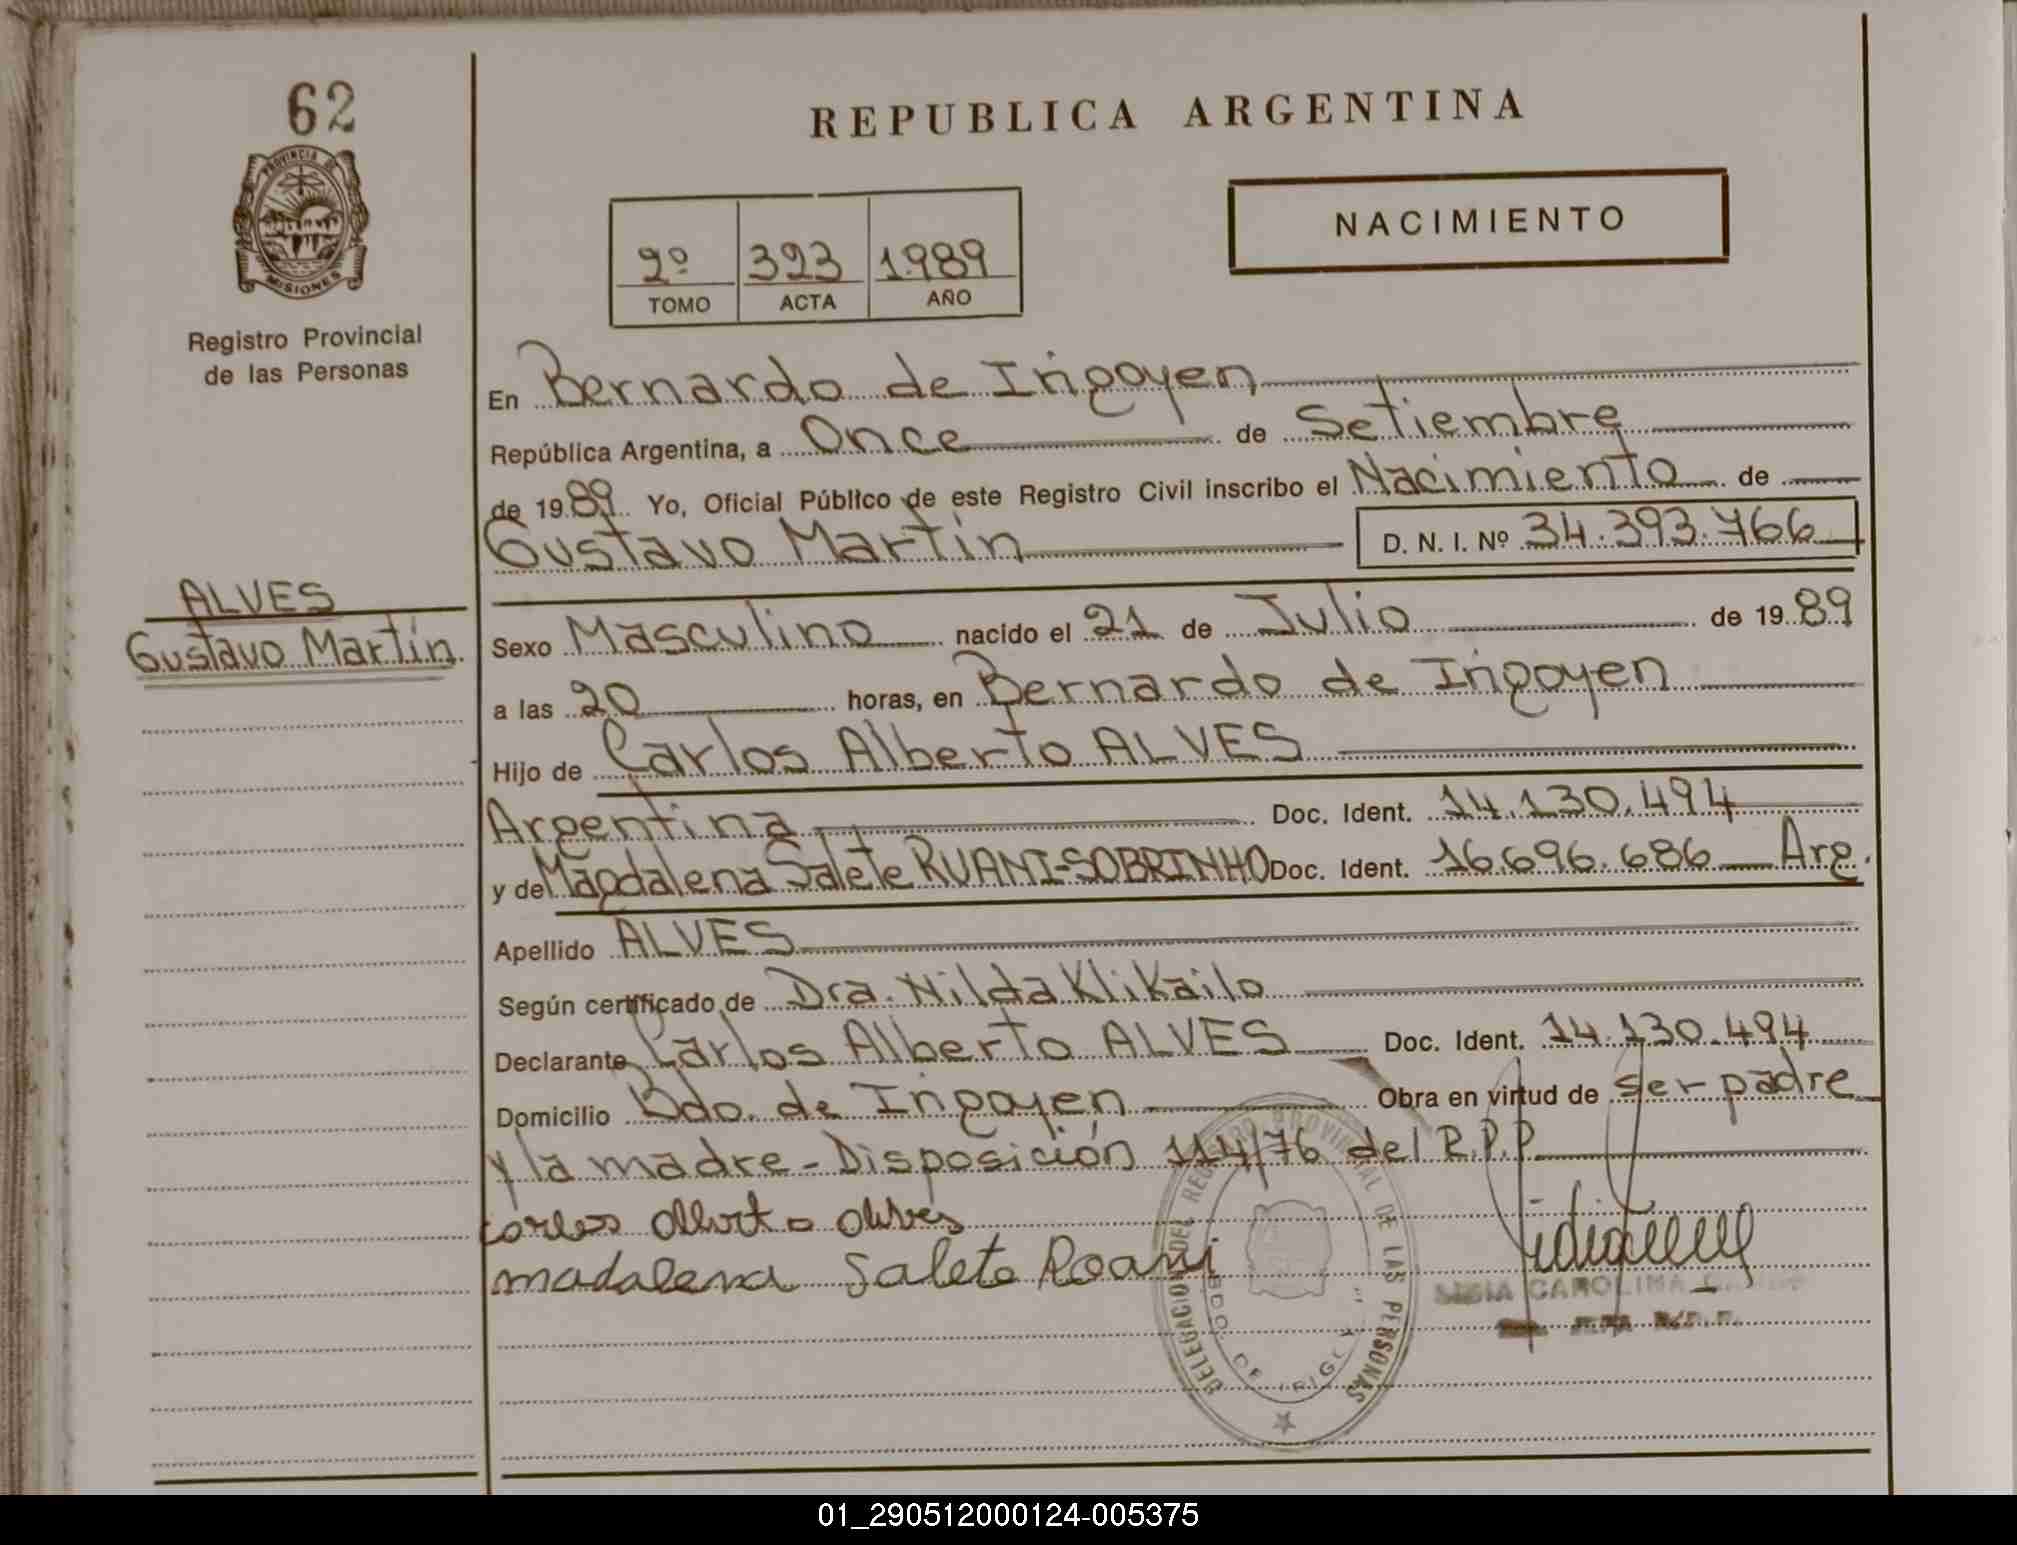 62
PROVINCIA DE
MISIONES
Registro Provincial
de las Personas
ALVES
Gustavo Martín
REPUBLICA ARGENTINA
NACIMIENTO
2º 323 1.989
TOMO ACTA AÑO
En Bernardo de Irigoyen
República Argentina, a Once de Setiembre
de 1989 Yo, Oficial Público de este Registro Civil inscribo el Nacimiento de
Gustavo Martín D. N. I. Nº 34.393.766
Sexo Masculino nacido el 21 de Julio de 1989
a las 20 horas, en Bernardo de Irigoyen
Hijo de Carlos Alberto ALVES
Argentina Doc. Ident. 14.130.494
y de Magdalena Salete RUANI-SOBRINHO Doc. Ident. 16.696.686 Arg.
Apellido ALVES
Según certificado de Dra. Nilda Klikailo
Declarante Carlos Alberto ALVES Doc. Ident. 14.130.494
Domicilio Bdo. de Irigoyen Obra en virtud de ser padre
y la madre - Disposición 114/76 del R.P.P.
carlos Albert o Alves
madalena Salete Roani
DELEGACION DEL REGISTRO PROVINCIAL DE LAS PERSONAS
BDO. DE IRIGOY
CAROLINA
01_290512000124-005375